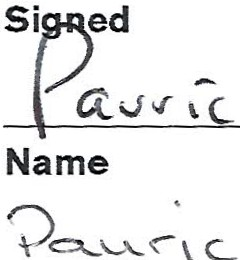 Signed
Pauric
Name
Pauric